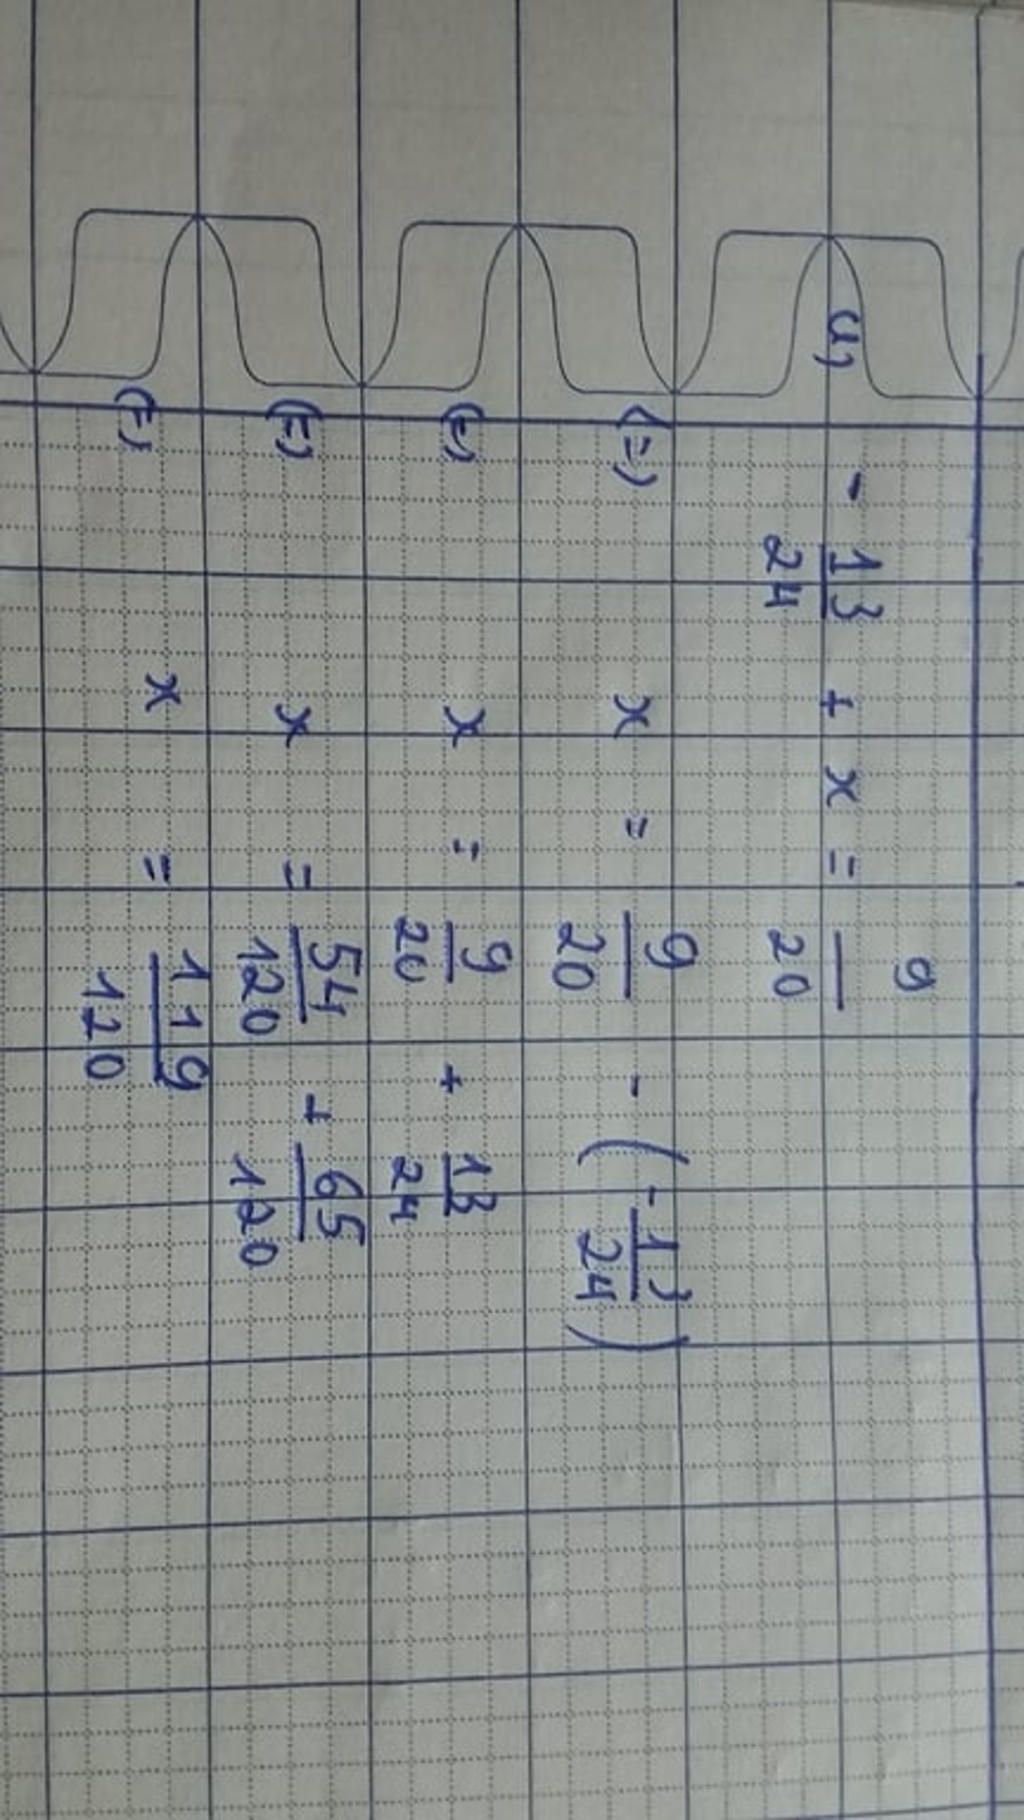 4) - 13/24 + x = 9/20
(=) x = 9/20 - (- 13/24)
(=) x = 9/20 + 13/24
(=) x = 54/120 + 65/120
(=) x = 119/120